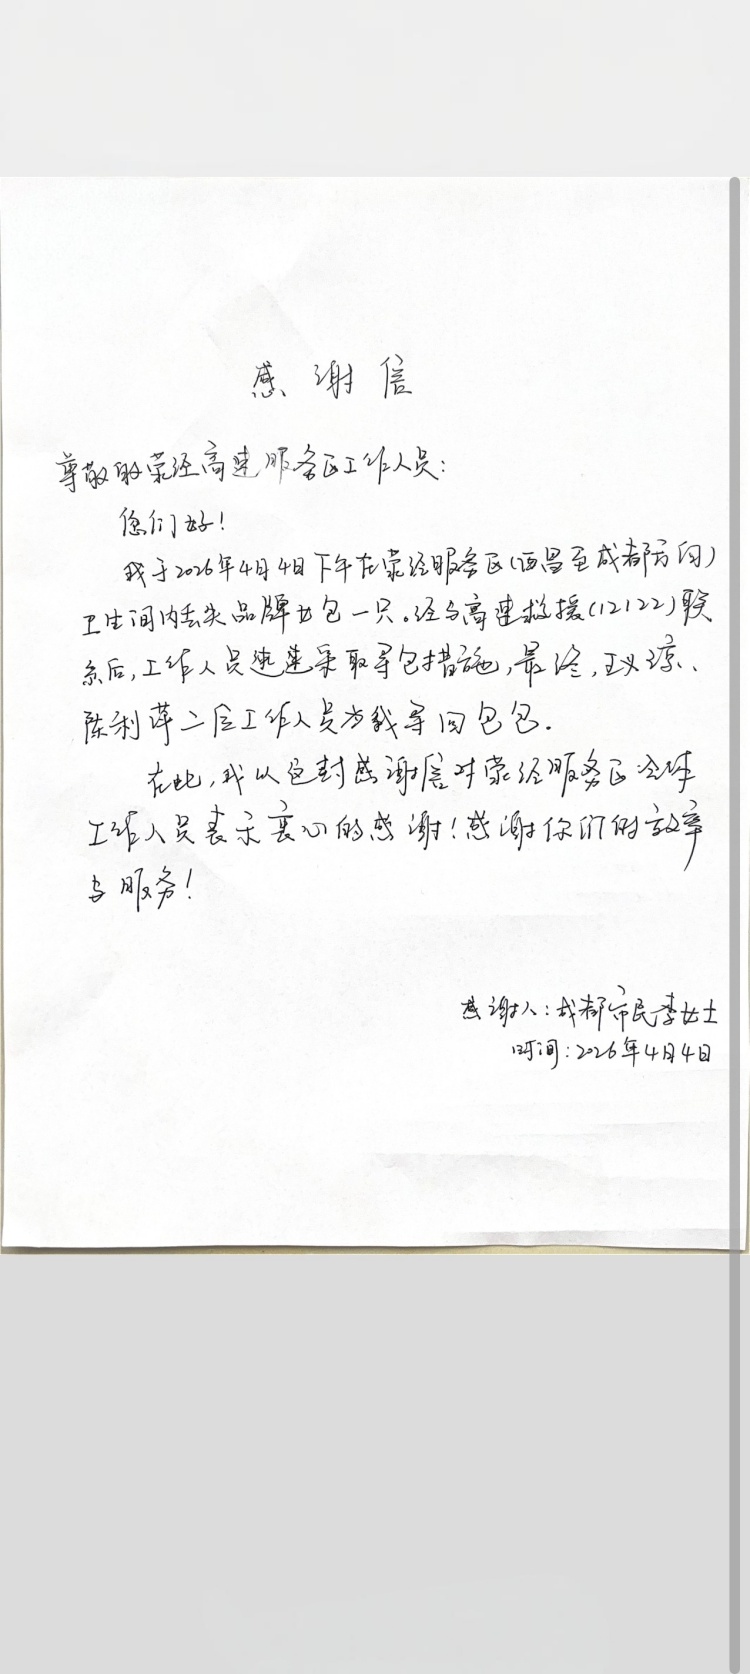 感谢信
尊敬的荥经高速服务区工作人员:
您们好!
我于2026年4月4日下午在荥经服务区(西昌至成都方向)
卫生间内丢失品牌女包一只。经与高速救援(12122)联
系后,工作人员迅速采取寻包措施,最终,王义琼、
陈利萍二位工作人员为我寻回包包.
在此,我以这封感谢信对荥经服务区全体
工作人员表示衷心的感谢!感谢你们的效率
与服务!
感谢人:成都市民李女士
时间:2026年4月4日